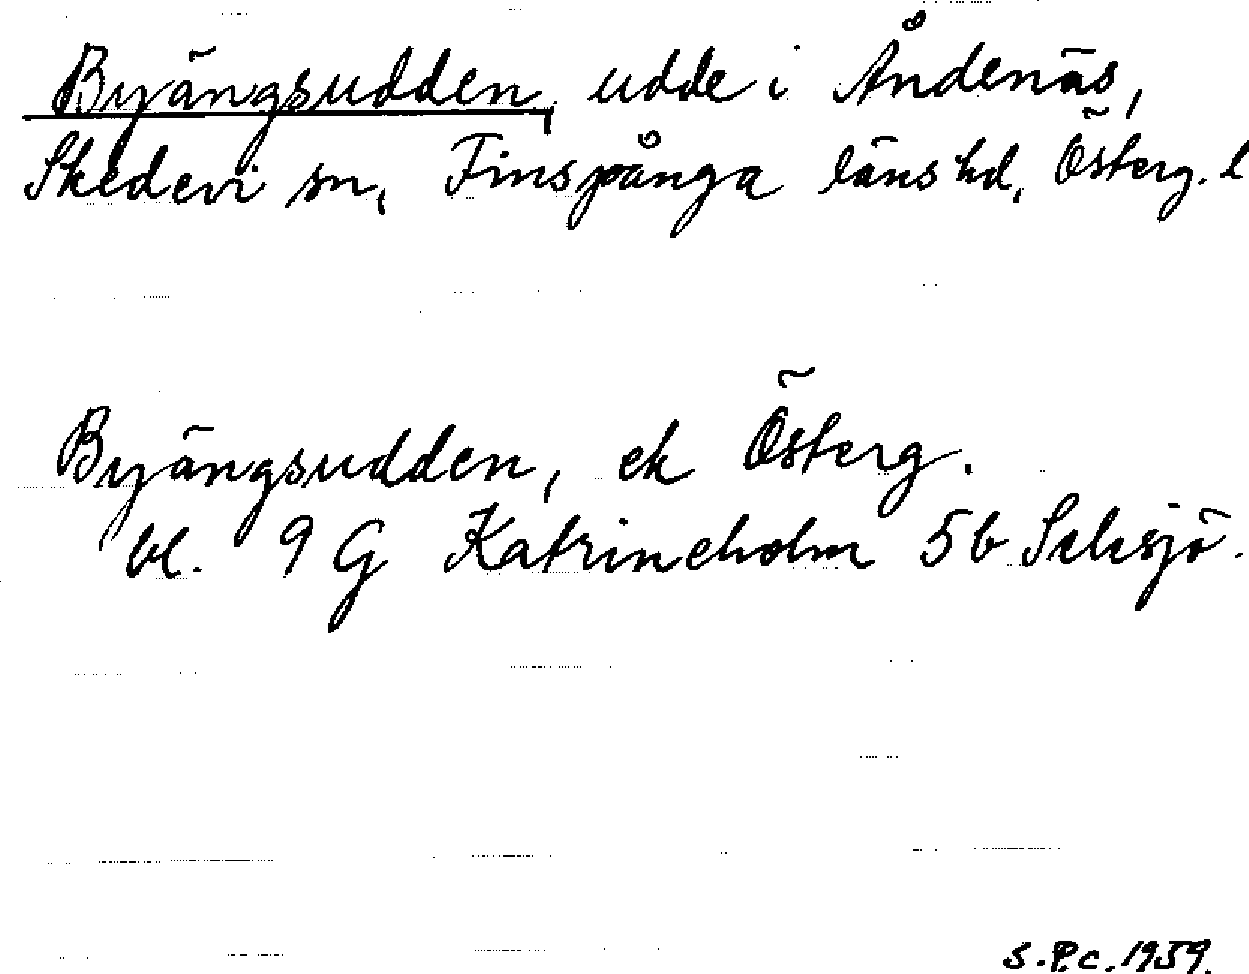 Byängsudden, udde i Åndenäs,
Skedevi sn, Finspånga läns hd, Österg. l
Byängsudden, ek Österg.
bl. 9 G Katrineholm 5b
S.P.C. 1959.